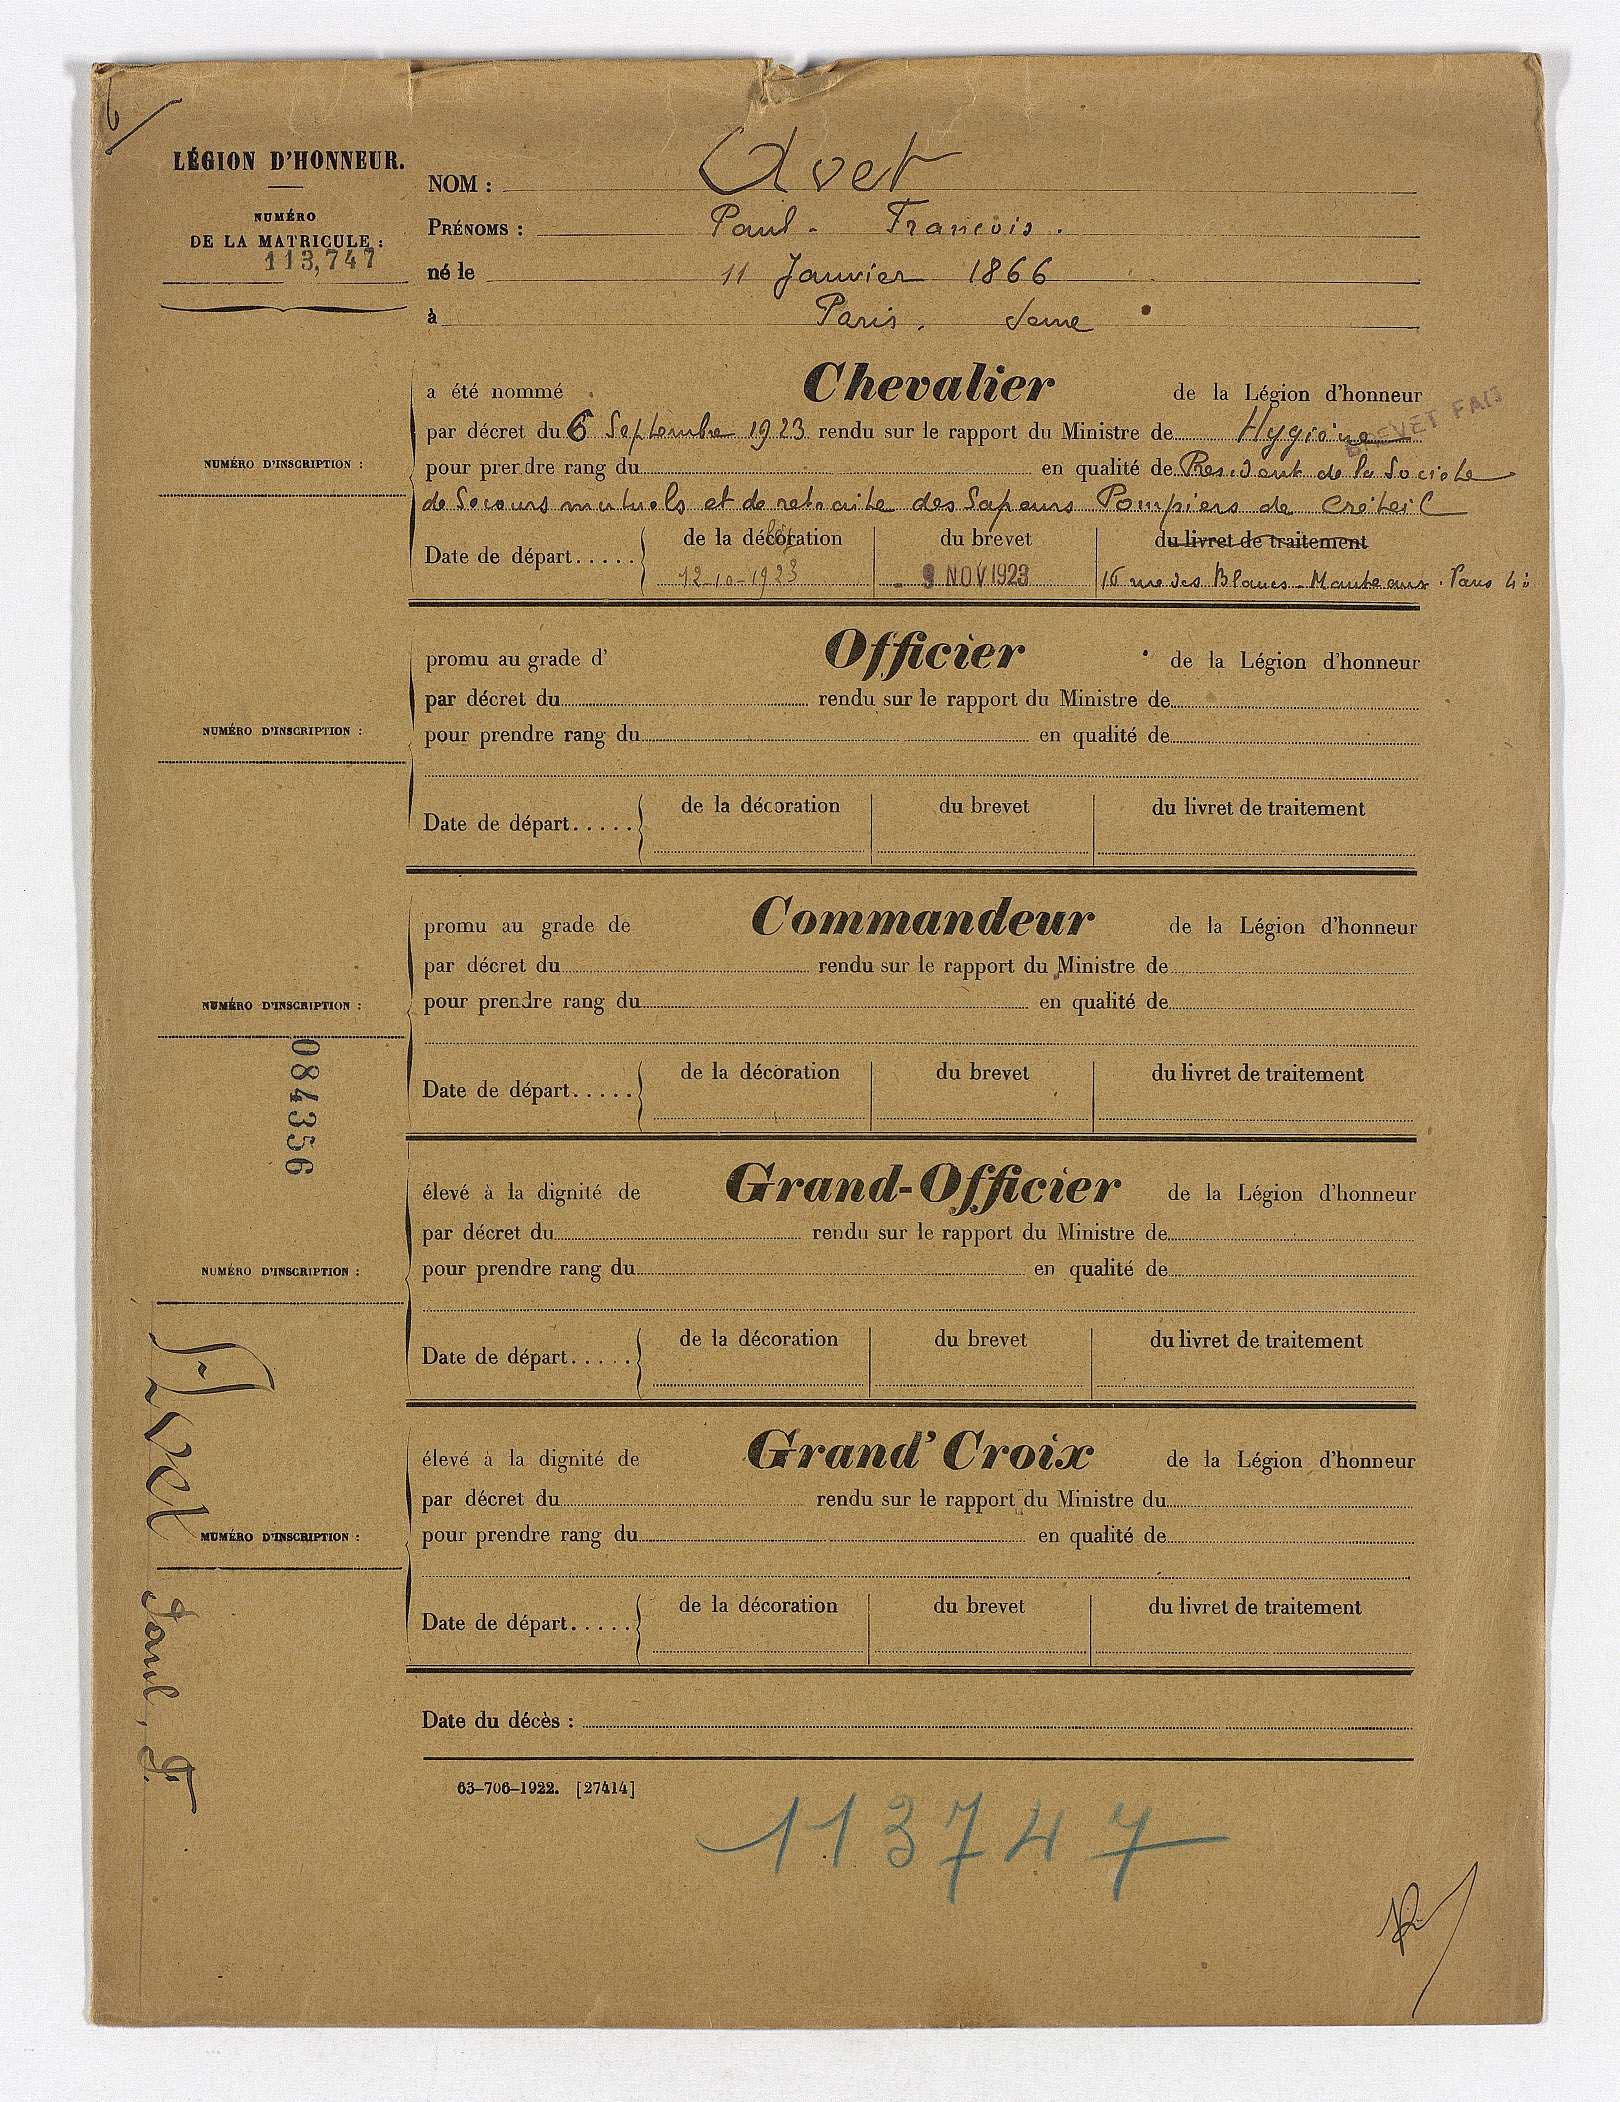 LÉGION D'HONNEUR.
NUMÉRO
DE LA MATRICULE :
113,747
NOM : Avet
PRÉNOMS : Paul - François.
né le 11 Janvier 1866
à Paris. Seine
a été nommé Chevalier de la Légion d'honneur
par décret du 6 Septembre 1923 rendu sur le rapport du Ministre de Hygiène
BREVET FAIT
NUMÉRO D'INSCRIPTION :
pour prendre rang du en qualité de President de la Societe
de Secours mutuels et de retraite des Sapeurs Pompiers de Créteil
Date de départ..... de la décoration du brevet du livret de traitement
12-10-1923 - 9 NOV 1923 16 rue des Blancs-Manteaux. Paris 4e
promu au grade d' Officier de la Légion d'honneur
par décret du rendu sur le rapport du Ministre de
NUMÉRO D'INSCRIPTION :
pour prendre rang du en qualité de
Date de départ..... de la décoration du brevet du livret de traitement
promu au grade de Commandeur de la Légion d'honneur
par décret du rendu sur le rapport du Ministre de
NUMÉRO D'INSCRIPTION :
pour prendre rang du en qualité de
084356
Date de départ..... de la décoration du brevet du livret de traitement
élevé à la dignité de Grand-Officier de la Légion d'honneur
par décret du rendu sur le rapport du Ministre de
NUMÉRO D'INSCRIPTION :
pour prendre rang du en qualité de
Date de départ..... de la décoration du brevet du livret de traitement
élevé à la dignité de Grand' Croix de la Légion d'honneur
par décret du rendu sur le rapport du Ministre du
NUMÉRO D'INSCRIPTION :
pour prendre rang du en qualité de
Date de départ..... de la décoration du brevet du livret de traitement
Avet Paul, F.
Date du décès :
63-706-1922. [27414]
113747